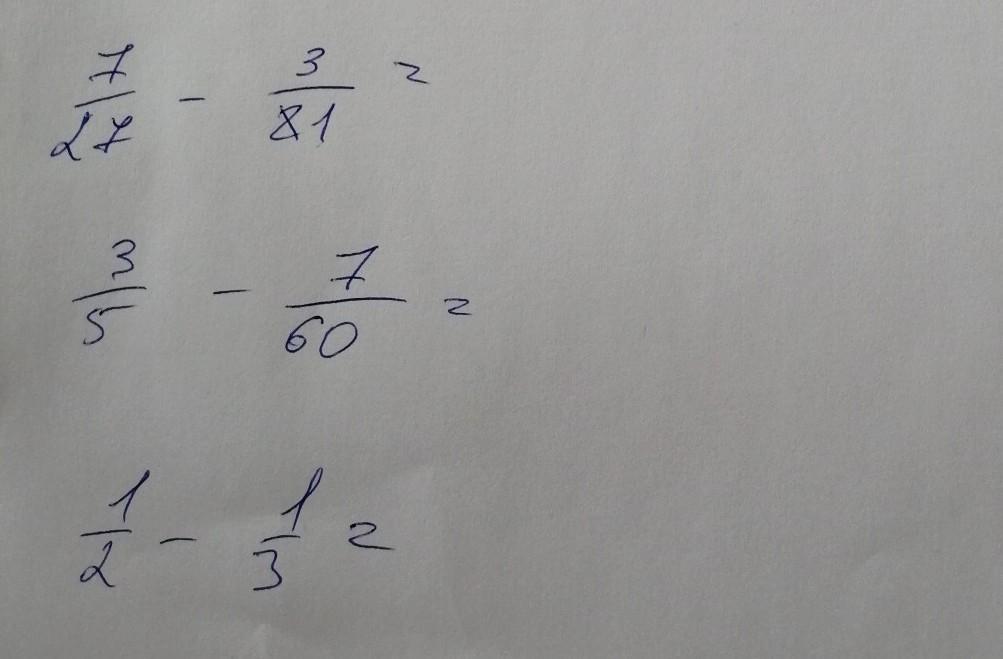 7/27 - 3/81 =
3/5 - 7/60 =
1/2 - 1/3 =